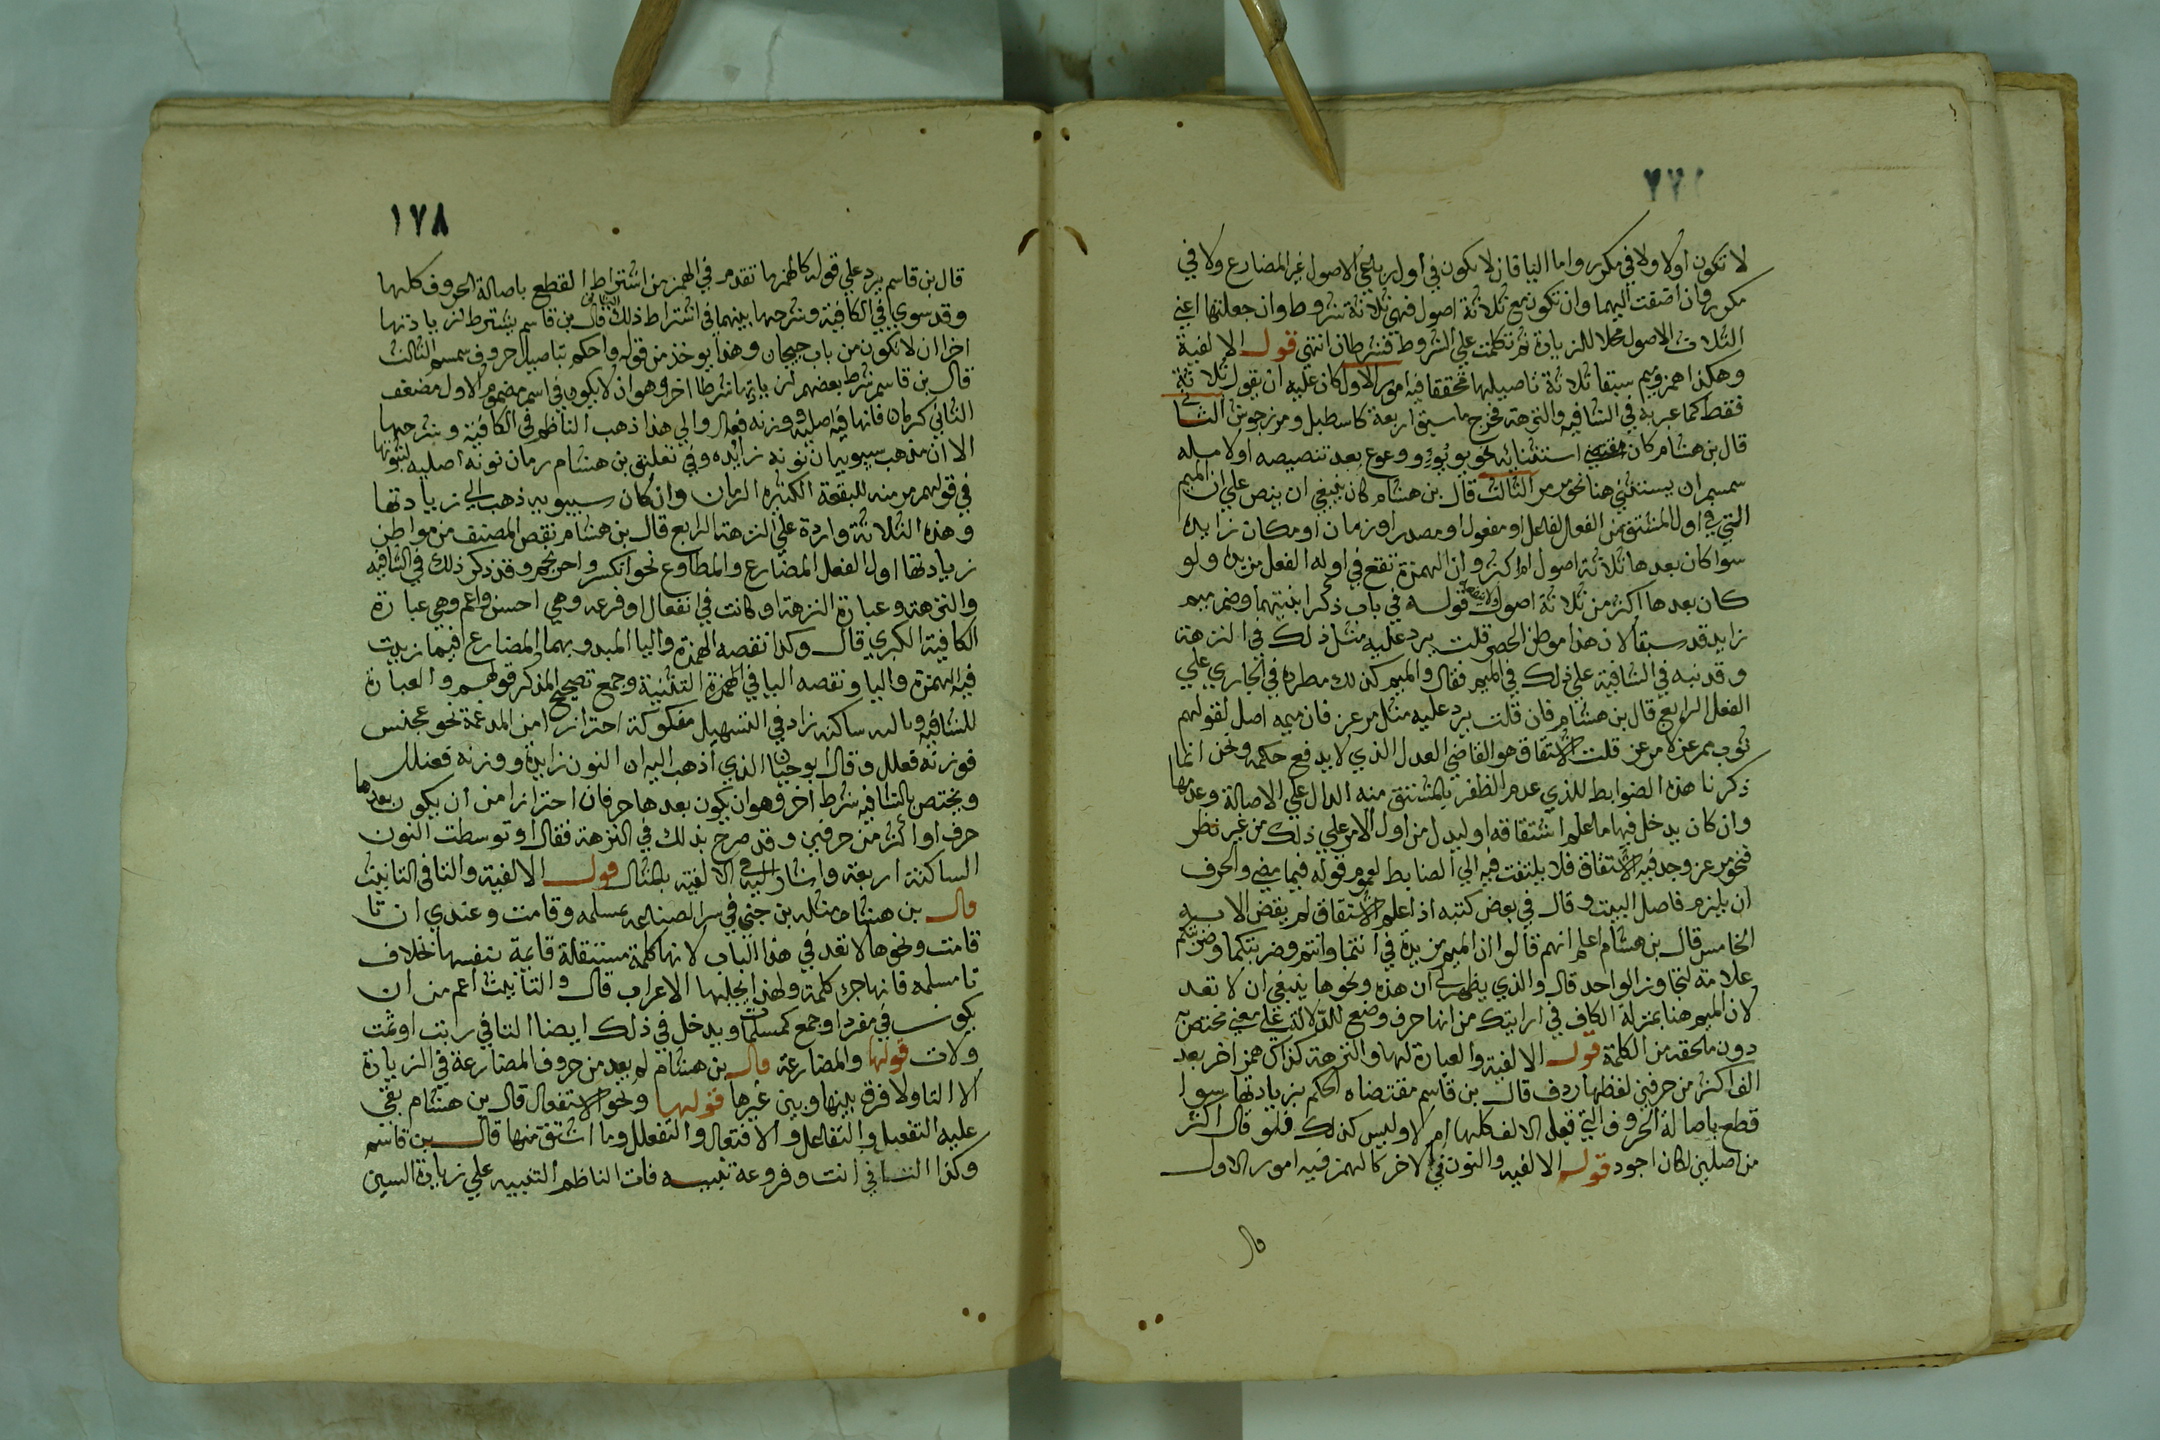 لا تكون اولا ولا في مكرر واما اليا فان لا تكون في اول رباعي الاصول غير المضارع ولا في
مكرر وان اضفت اليهما وان تكون مع ثلاثة اصول فهي ثلاثة شروط وان جعلتها اعني
الثلاث الاصول محلا للزيادة ثم تكلمت علي الشروط فشرطان انتهي قول الالفية
وهكذا همز وميم سبقا ثلاثة تاصيلها تحققا فيه امور الاول كان عليه ان يقول ثلاثة
فقط كما عبر به في الشافيه والنزهة فخرج ما سبق اربعة كاسطبل ومرزجوش الثاني
قال بن هشام كان استثنائه نحو يويو ووعوع بعد تنصيصه اولا مسله
سمسم ان يستثني هنا نحو مرمر الثالث قال بن هشام كان ينبغي ان ينص علي ان الميم
التي في اول المشتق من الفعل لفاعل او مفعول او مصدر او زمان او مكان زايدة
سوا كان بعدها ثلاثة اصول ام اكثر وان الهمزة تقع في اوله الفعل مزيدة ولو
كان بعدها اكثر من ثلاثة اصول قوله في باب ذكر ابنيتهما وضم ميم
زايد قد سبقا لان هذا موطن الحصر قلت يرد عليه مثل ذلك في النزهة
وقد نبه في الشافية علي ذلك في الميم فقال والميم كذلك مطردة في الجاري علي
الفعل الرابع قال بن هشام فان قلت يرد عليه مثل مرعز فان ميمه اصل لقولهم
ثوب ممرعز لا مرعز قلت الاشتقاق هو القاضي العدل الذي لا يدفع حكمه ونحن انما
ذكرنا هذه الضوابط للذي عدم الظفر بالمشتق منه الدال علي الاصالة وعدمها
وان كان يدخل فيها ما علم اشتقاقه او ليدل من اول الامر علي ذلك من غير نظر
فنحو مرعز وجد فيه الاشتقاق فلا يلتفت فيه الي الضابط لعموم قوله فيما مضي والحرف
ان يلزم فاصل البيت وقال في بعض كتبه اذا علم الاشتقاق لم يقض الا به
الخامس قال بن هشام اعلم انهم قالوا ان الميم مزيدة في انتما وانتم وضربتكما وضربتكم
علامة لتجاوز الواحد قال والذي يظهر لي ان هذه ونحوها ينبغي ان لا تعد
لان الميم هنا بمنزلة الكاف في ارايتك من انها حرف وضع للدلالة علي معني مختص به
دون ما لحقه من الكلمة قول الالفية والعبارة لها والنزهة كذاك همز اخر بعد
الف اكثر من حرفين لفظها ردف قال بن قاسم مقتضاه الحكم بزيادتها سوا
قطع باصالة الحروف التي قبل الالف كلها ام لا وليس كذلك فلو قال اكثر
من اصلين لكان اجود قول الالفيه والنون في الاخر كالهمز فيه امور الاول
قال
١٧٨
قال بن قاسم يرد علي قوله كالهمز ما تقدم في الهمز من اشتراط القطع باصالة الحروف كلها
وقد سوي في الكافية وشرحها بينهما في اشتراط ذلك الثاني قال بن قاسم يشترط لزيادتها
اخرا ان لا تكون من باب جنجان وهذا يوخذ من قوله واحكم بتاصيل حروف سمسم الثالث
قال بن قاسم شرط بعضهم لزيادتها شرطا اخر وهو ان لا يكون في اسم مضموم الاول مضعف
الثاني كرمان فانها فيه اصلية ووزنه فعال والي هذا ذهب الناظم في الكافية وشرحها
الا ان مذهب سيبويه ان نونه زايدة وفي تعليق بن هشام رمان نونه اصليه لثبوتها
في قولهم مرمنه للبقعة الكثيرة الرمان وان كان سيبويه ذهب الي زيادتها
وهذه الثلاثة واردة علي النزهة الرابع قال بن هشام نقص المصنف من مواطن
زيادتها اول الفعل المضارع والمطاوع نحو انكسر واحرنجم وقد ذكر ذلك في الشافيه
والنزهة وعبارة النزهة او كانت في انفعال او فرعه وهي احسن واعم وهي عبارة
الكافية الكبري قال وكذا نقصه الهمزة واليا المبدو بهما المضارع فيما زيدت
فيه الهمزة واليا ونقصه اليا في الهمزة التثنية وجمع تصحيح المذكر قولهم والعبارة
للشافيه وبالـ ساكنه زاد في التسهيل مفكوكة احترازا من المدغمة نحو عجنس
فوزنه فعلل وقال ابو حيان الذي اذهب اليه ان النون زايدة ووزنه فعنلل
ويختص بالشافيه شرط اخر وهو ان يكون بعدها حرفان احترازا من ان يكون بعدها
حرف او اكثر من حرفين وقد صرح بذلك في النزهة فقال او توسطت النون
الساكنة اربعة واشار اليه في الالفية بالمثال قول الالفية والتا في التانيث
قال بن هشام مثله بن جني في سر الصناعه بمسلمه وقامت وعندي ان تا
قامت ونحوها لا تعد في هذا الباب لانها كلمة مستقلة قايمة بنفسها بخلاف
تا مسلمه فانها جزء كلمة ولهذا يجلبها الاعراب قال والتانيث اعم من ان
يكون في مفرد او جمع كمسلمات ويدخل في ذلك ايضا التا في رابت او ثمت
ولات قولها والمضارعة قال بن هشام لم يعد من حروف المضارعة في الزيادة
الا التا ولا فرق بينها وبين غيرها قولها ونحو الاستفعال قال بن هشام بقي
عليه التفعيل والتفاعل والافتعال والتفعلل وما اشتق منها قال بن قاسم
وكذا التا في انت وفروعه تنبيه فات الناظم التنبيه علي زيادة السين